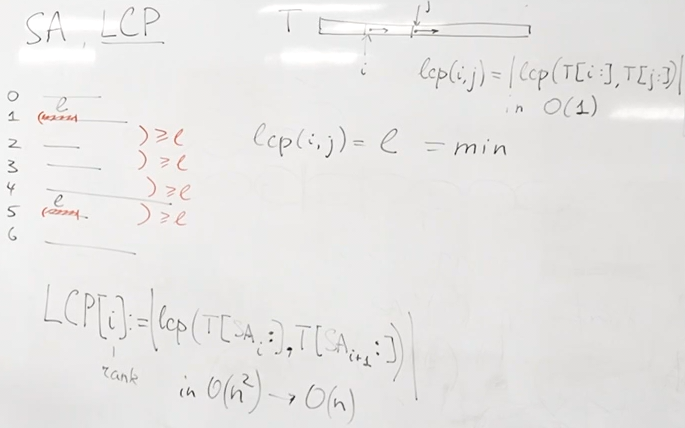 SA, LCP
T
i
j
lcp(i,j) = |lcp(T[i:], T[j:])|
in O(1)
0
l
1
) ≥ l
2
) ≥ l
3
) ≥ l
4
l
5
) ≥ l
6
lcp(i,j) = l = min
LCP[i] := |lcp(T[SA_i:], T[SA_{i+1}:])|
rank
in O(n²) → O(n)